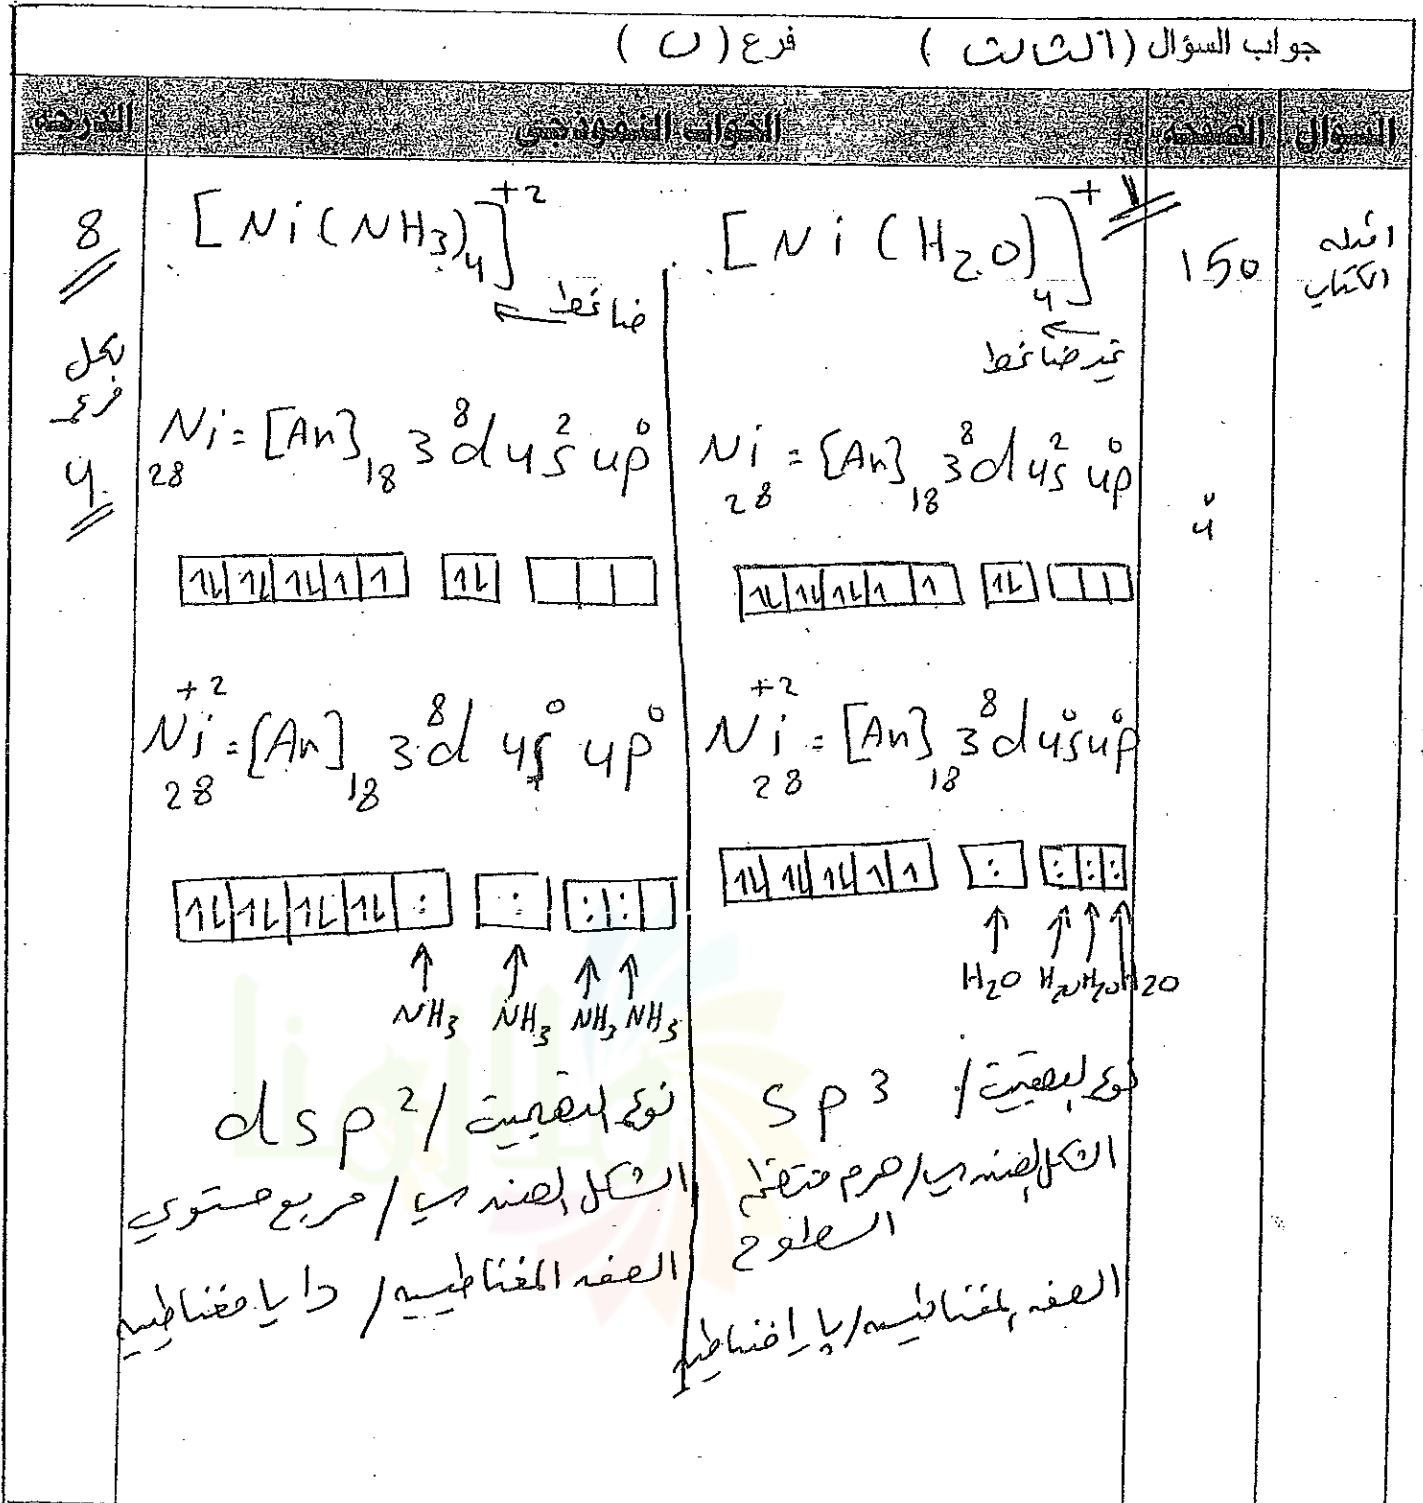 جواب السؤال (الثالث) فرع (ب)
السؤال الصفحة الجواب النموذجي الدرجة
الكتاب
150
[Ni(H2O)4]+
غير ضاغط
Ni = [Ar] 3d8 4s2 4p0
28 18
1L 1L 1L 1 1 1L
+2
Ni = [Ar] 3d8 4s0 4p0
28 18
1L 1L 1L 1 1 : : : :
↑ ↑ ↑ ↑
H2O H2O H2O H2O
نوع التهجين / sp3
الشكل الهندسي / هرم منتظم
السطوح
الصفه المغناطيسيه / بارامغناطيسيه
[Ni(NH3)4]+2
ضاغط
Ni = [Ar] 3d8 4s2 4p0
28 18
1L 1L 1L 1 1 1L
+2
Ni = [Ar] 3d8 4s0 4p0
28 18
1L 1L 1L 1L : : : :
↑ ↑ ↑ ↑
NH3 NH3 NH3 NH3
نوع التهجين / dsp2
الشكل الهندسي / مربع مستوي
الصفه المغناطيسيه / دايا مغناطيسيه
8
لكل
فرع
4
ملازمنا